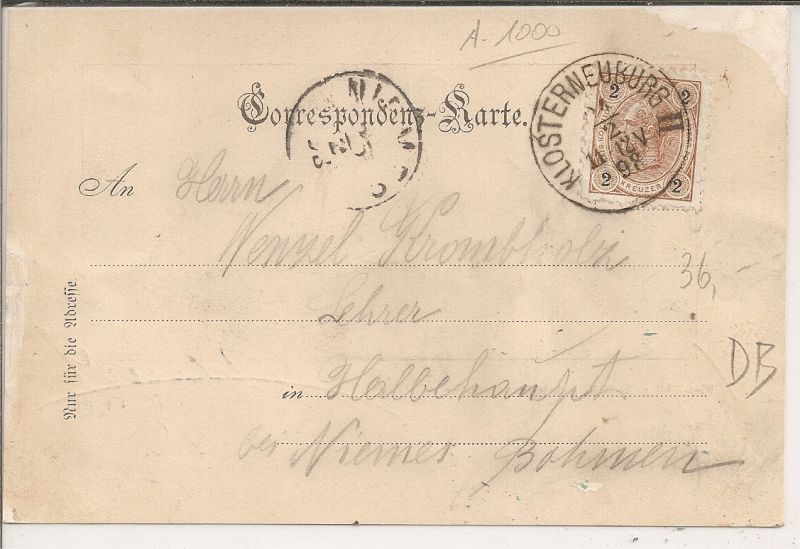 A-1000
Correspondenz-Karte.
KLOSTERNEUBURG II
98
2 2
2 2
KREUZER
An Herrn
Wenzel Krombholz
Lehrer
in Halbehaupt
bei Niemes Böhmen
Nur für die Adresse.
36,
DB